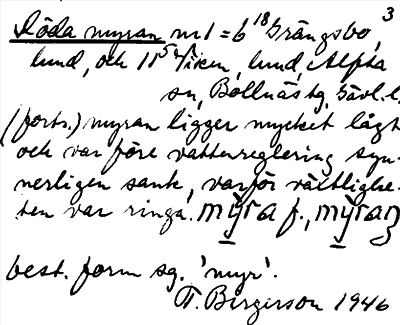 3
Röda myran nr 1 = 6 18 Grängsbo,
lund, och 11 5 lund, Alfta
sn, Bollnäs tg, Gävl.l.
(forts.) myran ligger mycket lågt
och var före vattenreglering syn-
nerligen sank, varför växtlighe-
ten var ringa. f.,
best. form sg. 'myr'.
T. Bergerson 1946